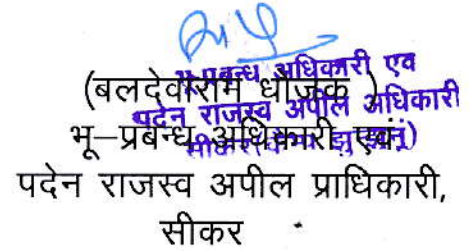 (बलदेवाराम धोजक)
भू–प्रबन्ध अधिकारी एवं
पदेन राजस्व अपील प्राधिकारी,
सीकर
भू-प्रबन्ध अधिकारी एव
पदेन राजस्व अपील अधिकारी